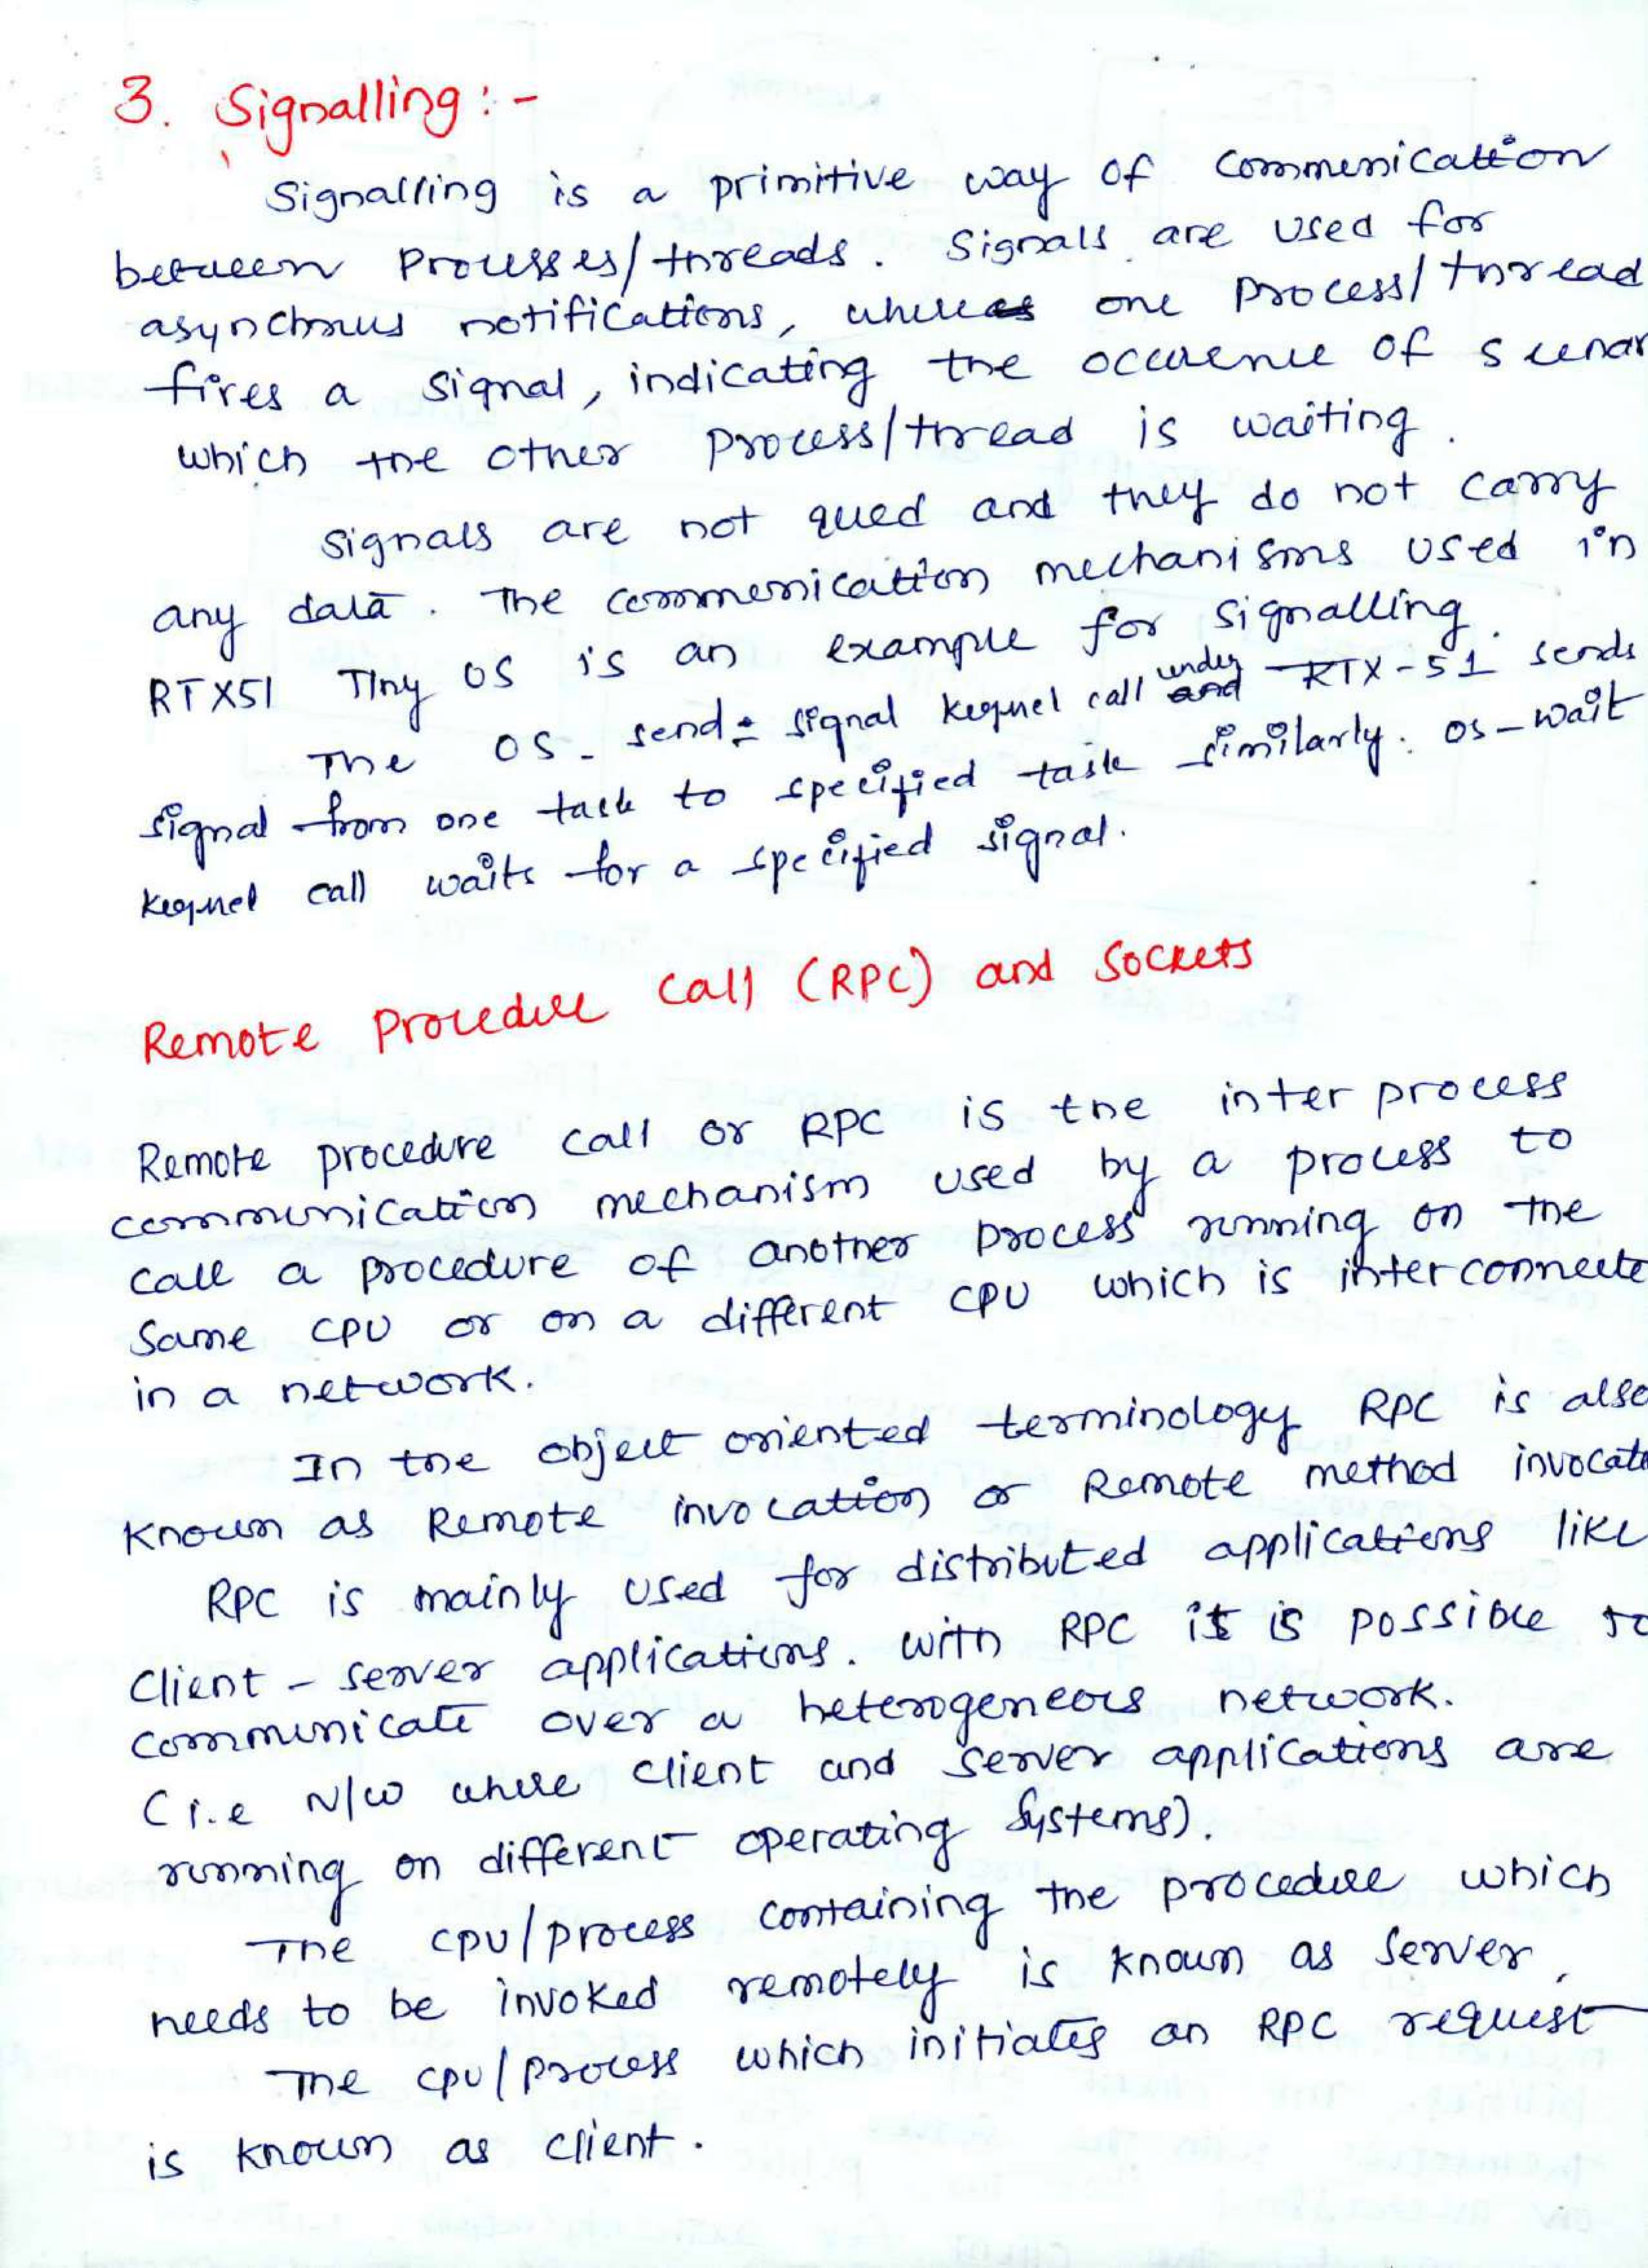 3. Signalling:-
Signalling is a primitive way of communication
between Processes/threads. Signals are used for
asynchnous notifications, where one process/thread
fires a signal, indicating the occurence of scenar
which the other process/thread is waiting.
Signals are not qued and they do not carry
any data. The communication mechanisms used in
RTX51 Tiny OS is an example for signalling.
The OS-send-signal kernel call under RTX-51 sends
signal from one task to specified task similarly. os-wait
kernel call waits for a specified signal.
Remote Procedure Call (RPC) and Sockets
Remote procedure call or RPC is the inter process
communication mechanism used by a process to
call a procedure of another process running on the
Same CPU or on a different CPU which is interconnecte
in a network.
In the object oriented terminology RPC is also
Known as Remote invocation or Remote method invocati
RPC is mainly used for distributed applications like
Client - server applications. With RPC it is possible to
communicate over a heterogeneous network.
(i.e N/W where client and server applications are
running on different operating Systems).
The CPU/process containing the procedure which
needs to be invoked remotely is known as Server,
The CPU/process which initiates an RPC request
is known as client.